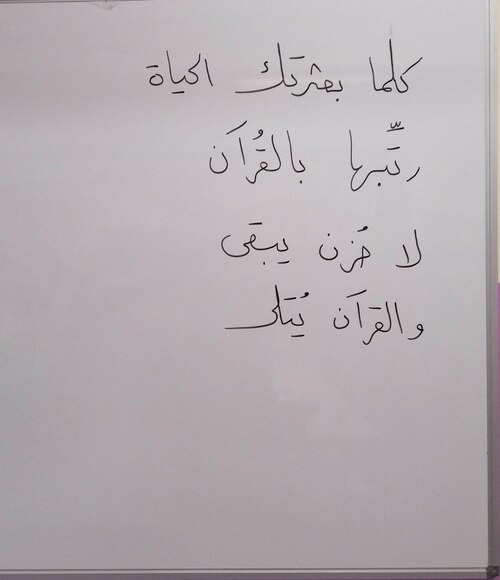 كلما بعثرتك الحياة
رتّبها بالقُرآن
لا حُزن يبقى
والقرآن يُتلى